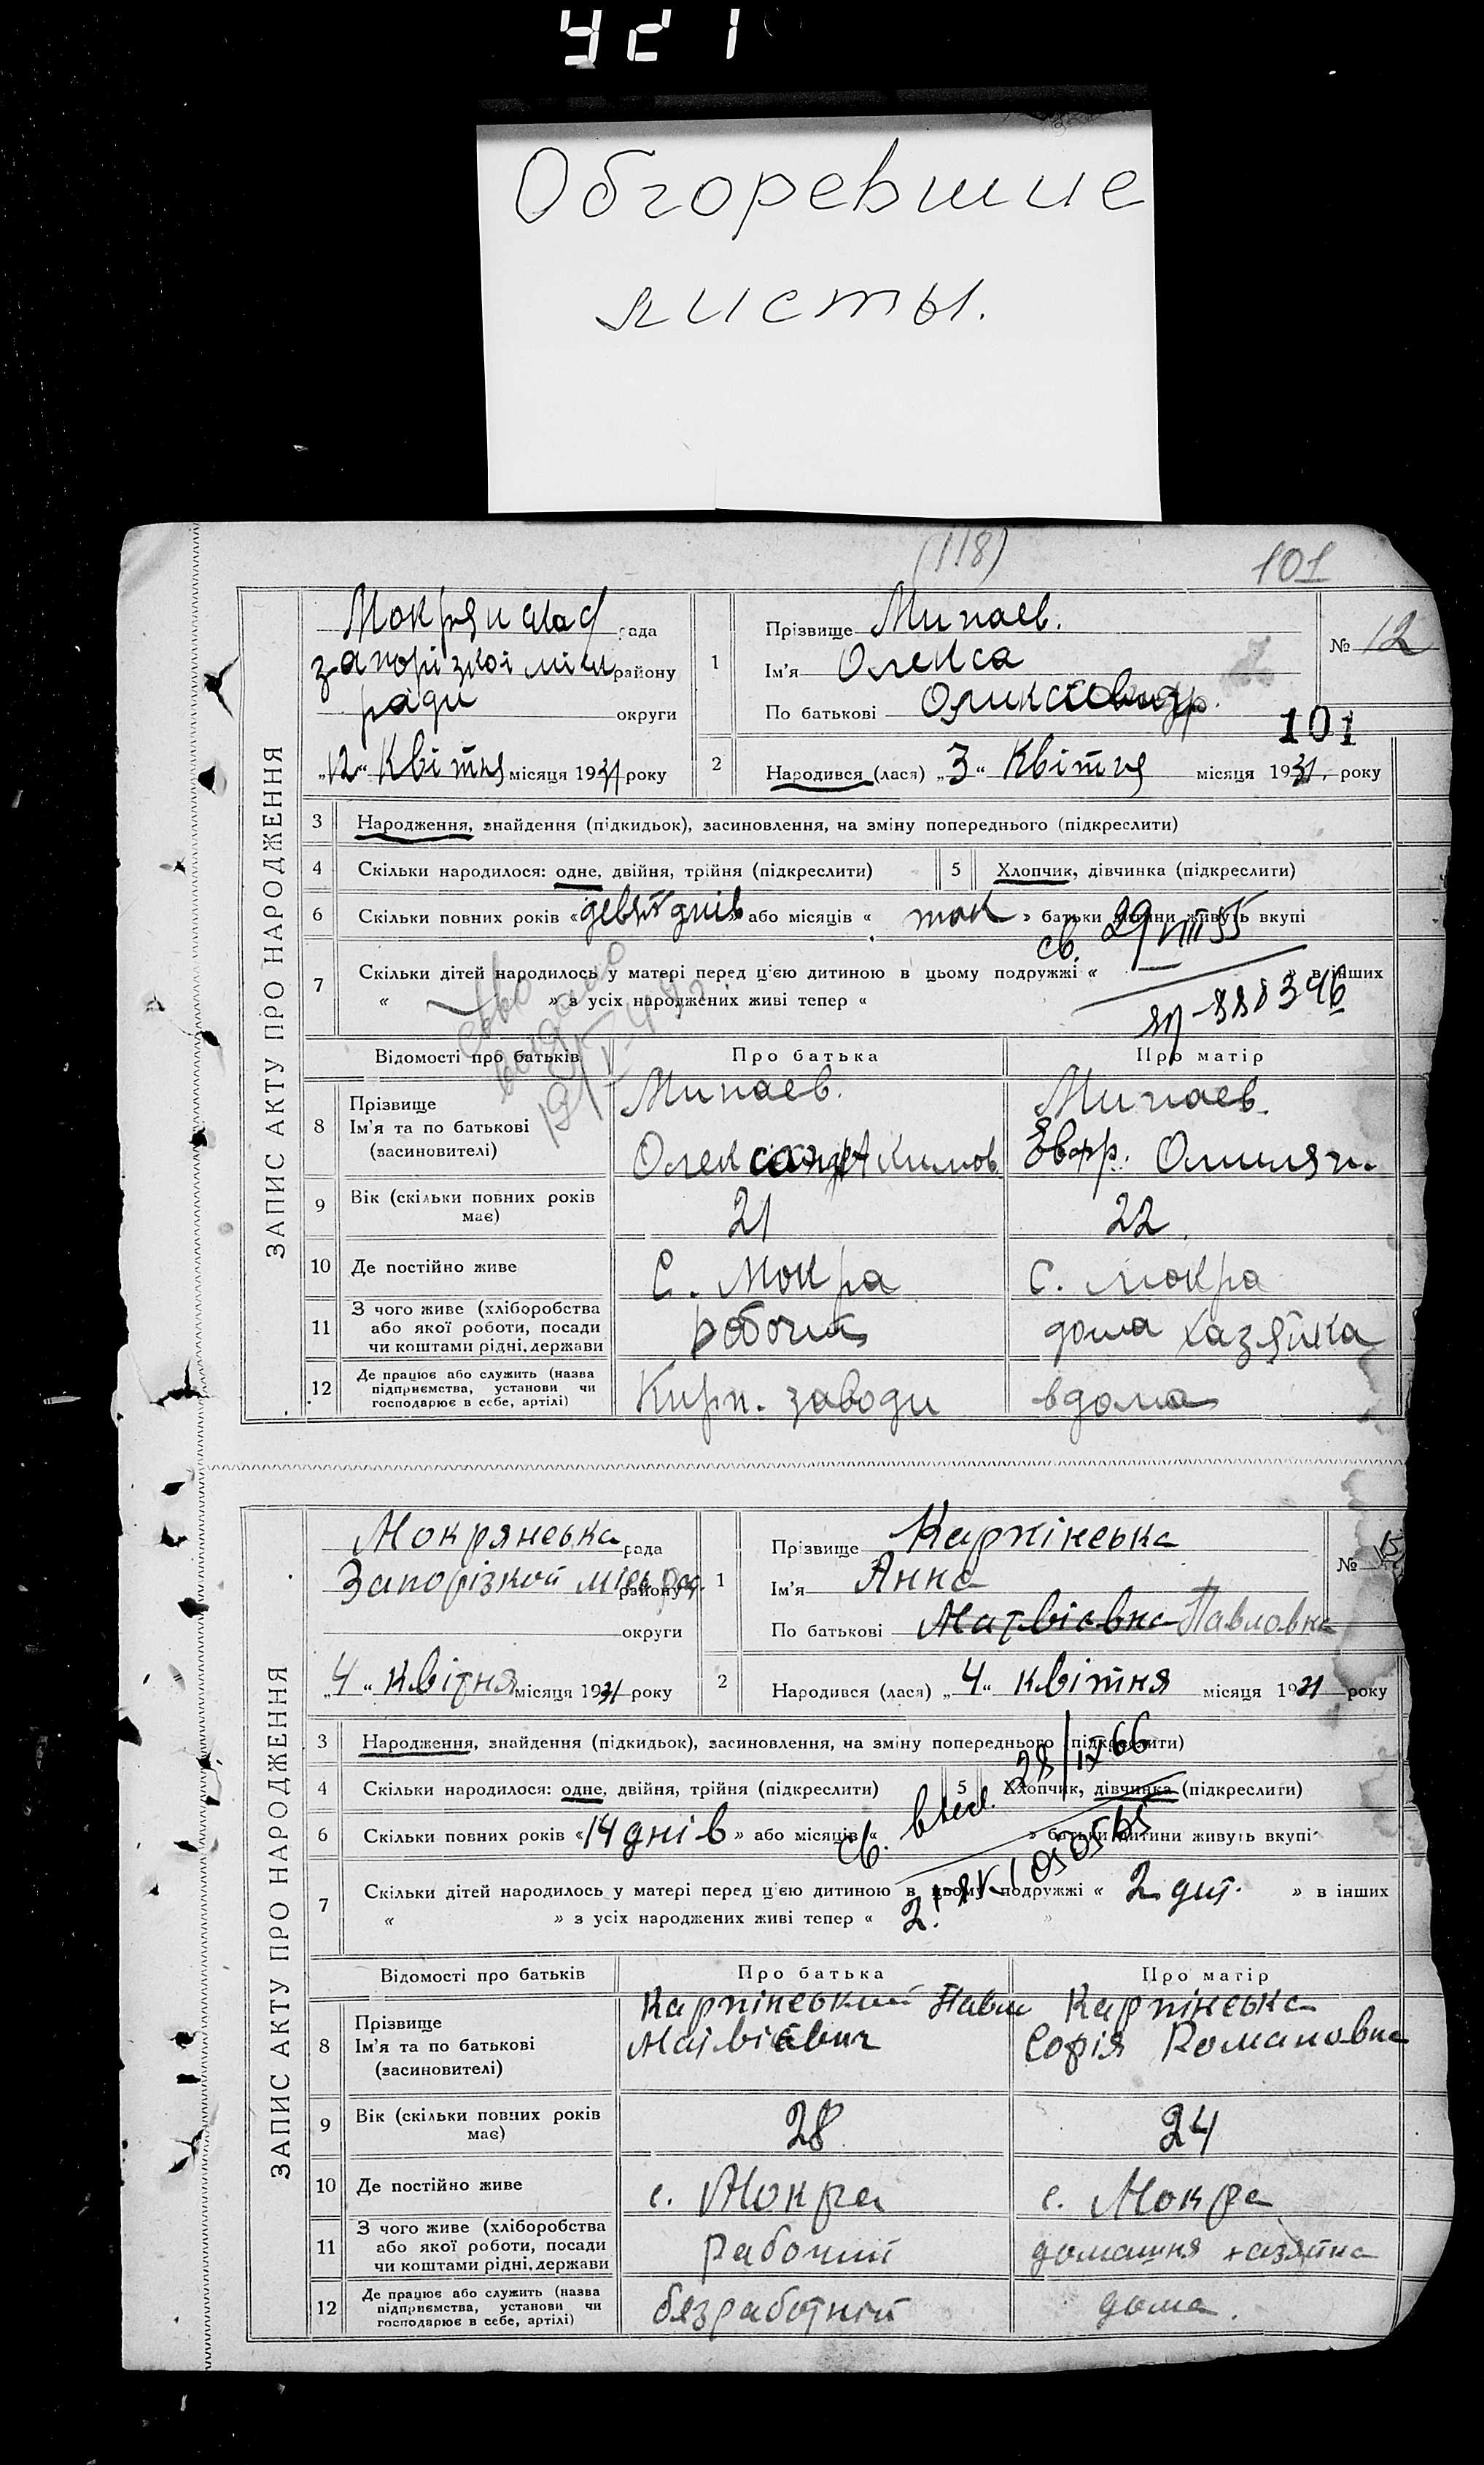 421
Обгоревшие
листы.
(118)
101
ЗАПИС АКТУ ПРО НАРОДЖЕННЯ
рада
запорізкоі міськ району
ради округи
"12" Квітня місяця 1931 року
1
Прізвище Минаев.
Ім'я Олекса
По батькові
№ 12
101
2
Народився (лася) "3" Квітня місяця 1931. року
3 Народження, знайдення (підкидьок), засиновлення, на зміну попереднього (підкреслити)
4 Скільки народилося: одне, двійня, трійня (підкреслити) 5 Хлопчик, дівчинка (підкреслити)
6 Скільки повних років « девят днів » або місяців « так » батьки дитини живуть вкупі
св. 29/VIII 55
7 Скільки дітей народилось у матері перед цією дитиною в цьому подружжі « » в інших
« » з усіх народжених живі тепер «
видано
Відомості про батьків Про батька Про матір
8 Прізвище
Ім'я та по батькові
(засиновителі)
Минаев. Минаев.
Евфр.
9 Вік (скільки повних років має) 21 22
10 Де постійно живе С. Мокра С. Мокра
11 З чого живе (хліборобства
або якої роботи, посади
чи коштами рідні, держави
дома хазяйка
12 Де працює або служить (назва
підприємства, установи чи
господарює в себе, артілі)
Кирп. заводи вдома
ЗАПИС АКТУ ПРО НАРОДЖЕННЯ
Мокрянська рада
Запорізкой міськ рад. району
округи
"4" квітня місяця 1931 року
1
Прізвище Карпінська
Ім'я Анна
По батькові Матвіевна Павловна
№ 15
2
Народився (лася) "4" квітня місяця 1931 року
3 Народження, знайдення (підкидьок), засиновлення, на зміну попереднього (підкреслити)
28/IX 66
4 Скільки народилося: одне, двійня, трійня (підкреслити) 5 Хлопчик, дівчинка (підкреслити)
6 Скільки повних років « 14 днів » або місяців « » батьки дитини живуть вкупі
св.
7 Скільки дітей народилось у матері перед цією дитиною в цьому подружжі « 2 дит. » в інших
« » з усіх народжених живі тепер « 2. »
Відомості про батьків Про батька Про матір
8 Прізвище
Ім'я та по батькові
(засиновителі)
Карпінський Павл Карпінська
Матвіевич Софія Романовна
9 Вік (скільки повних років має) 28 24
10 Де постійно живе с. Мокра с. Мокра
11 З чого живе (хліборобства
або якої роботи, посади
чи коштами рідні, держави
Рабочий домашня хазяйка
12 Де працює або служить (назва
підприємства, установи чи
господарює в себе, артілі)
безработній дома.